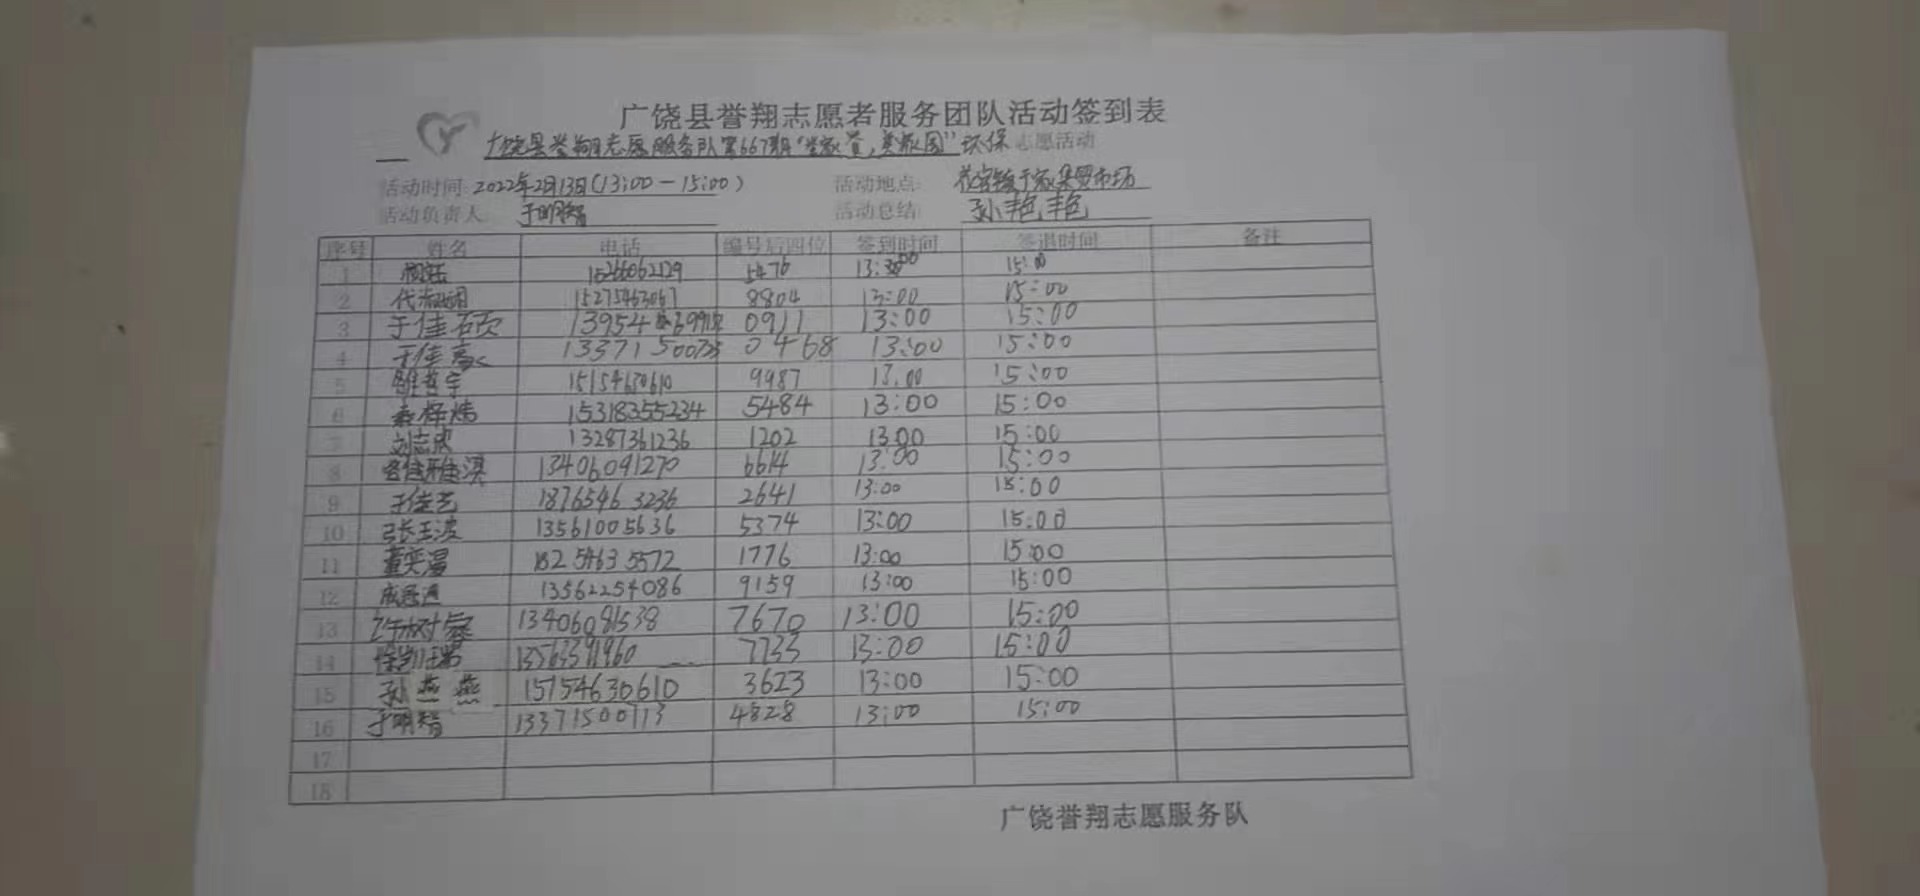 广饶县誉翔志愿者服务团队活动签到表
广饶县誉翔志愿服务队第667期"当家 美家园"环保志愿活动
活动时间:2022年2月13日(13:00-15:00) 活动地点: 花官镇于家集贸市场
活动负责人: 于明智 活动总结: 孙艳艳
序号 姓名 电话 编号后四位 签到时间 签退时间 备注
1 15266062129 5476 13:00 15:00
2 代 15275463067 8804 13:00 15:00
3 于佳硕 13954 0911 13:00 15:00
4 于佳 13371500 0468 13:00 15:00
5 哲宇 15154630610 9987 13:00 15:00
6 15318355234 5484 13:00 15:00
7 刘志欣 13287361236 1202 13:00 15:00
8 雅淇 13406091270 6614 13:00 15:00
9 于佳艺 18765463236 2641 13:00 15:00
10 张玉波 13561005636 5374 13:00 15:00
11 董奕 182 5463 5572 1776 13:00 15:00
12 成 13562254086 9159 13:00 15:00
13 许树 13406081538 7670 13:00 15:00
14 徐凯瑞 13563391960 7733 13:00 15:00
15 孙燕燕 15154630610 3623 13:00 15:00
16 于明智 13371500713 4828 13:00 15:00
17
18
广饶誉翔志愿服务队